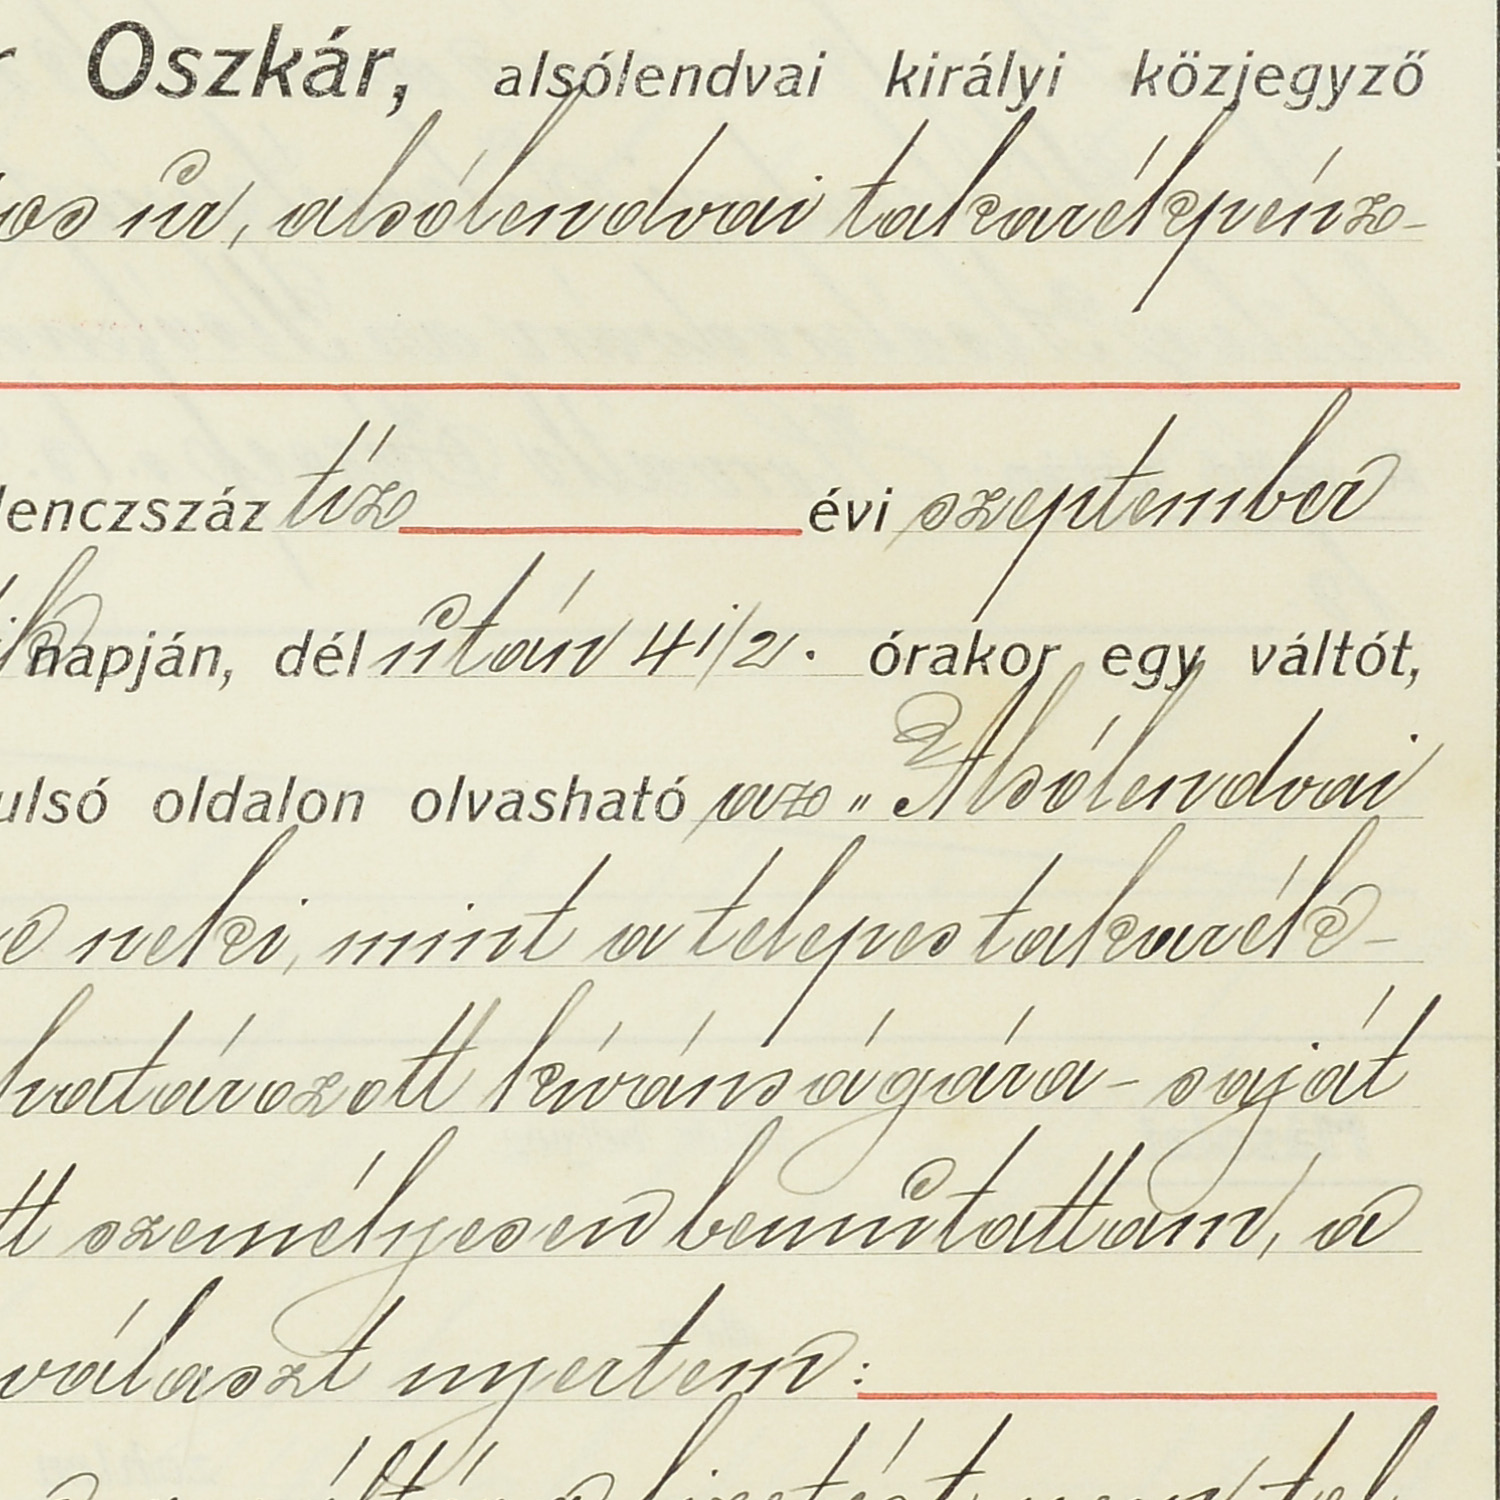 Oszkár, alsólendvai királyi közjegyző
úr, alsólendvai takarékpénz-
lenczszáz tíz évi szeptember
napján, dél után 4 1/2. órakor egy váltót,
ulsó oldalon olvasható az „Alsólendvai
e neki, mint a telepes takarék-
határozott kívánságára - saját
tt személyesen bemútattam, a
választ nyertem: